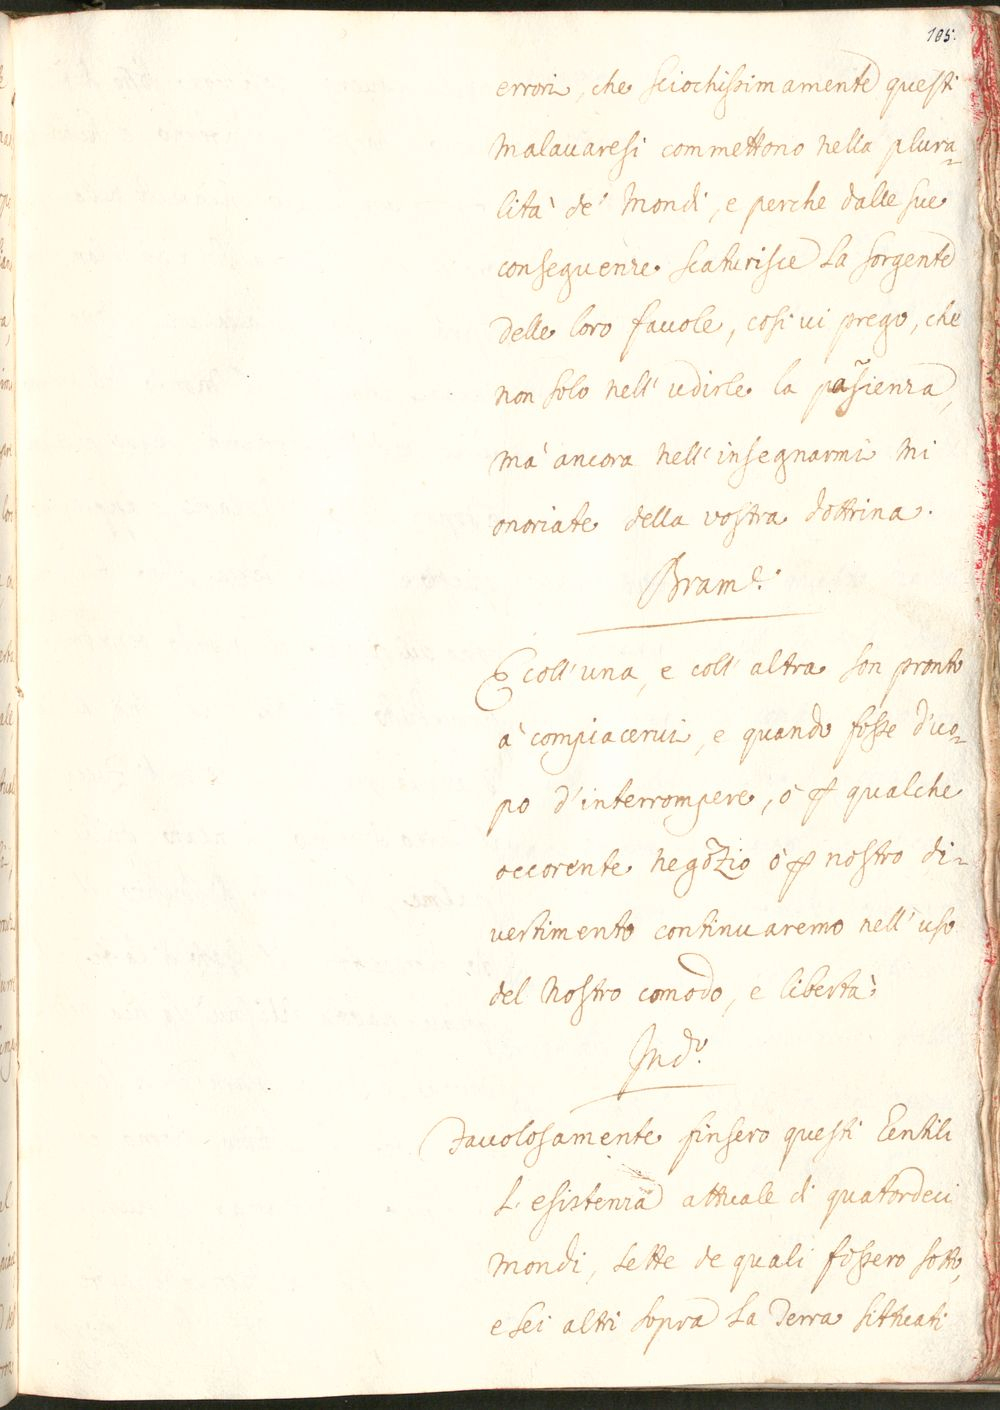 105.
errori, che sciochissimamente questi
Malavaresi commettono nella plura-
lità de' Mondi, e perche dalle sue
conseguenze scaturisce la sorgente
delle loro favole, così vi prego, che
non solo nell' udirle la pasienza,
mà ancora nell' insegnarmi mi
onoriate della vostra dottrina.
Bram.e
E coll' una, e coll' altra son pronto
à compiacervi, e quando fosse d'uo-
po d'interrompere, ò ꝑ qualche
occorente negozio ò ꝑ nostro di-
vertimento continuaremo nell' uso
del nostro comodo, e libertà.
Ind.o
Favolosamente finsero questi Gentili
L' esistenza attuale di quatordeci
Mondi, sette de quali fossero sotto,
e sei altri sopra la Terra sittuati